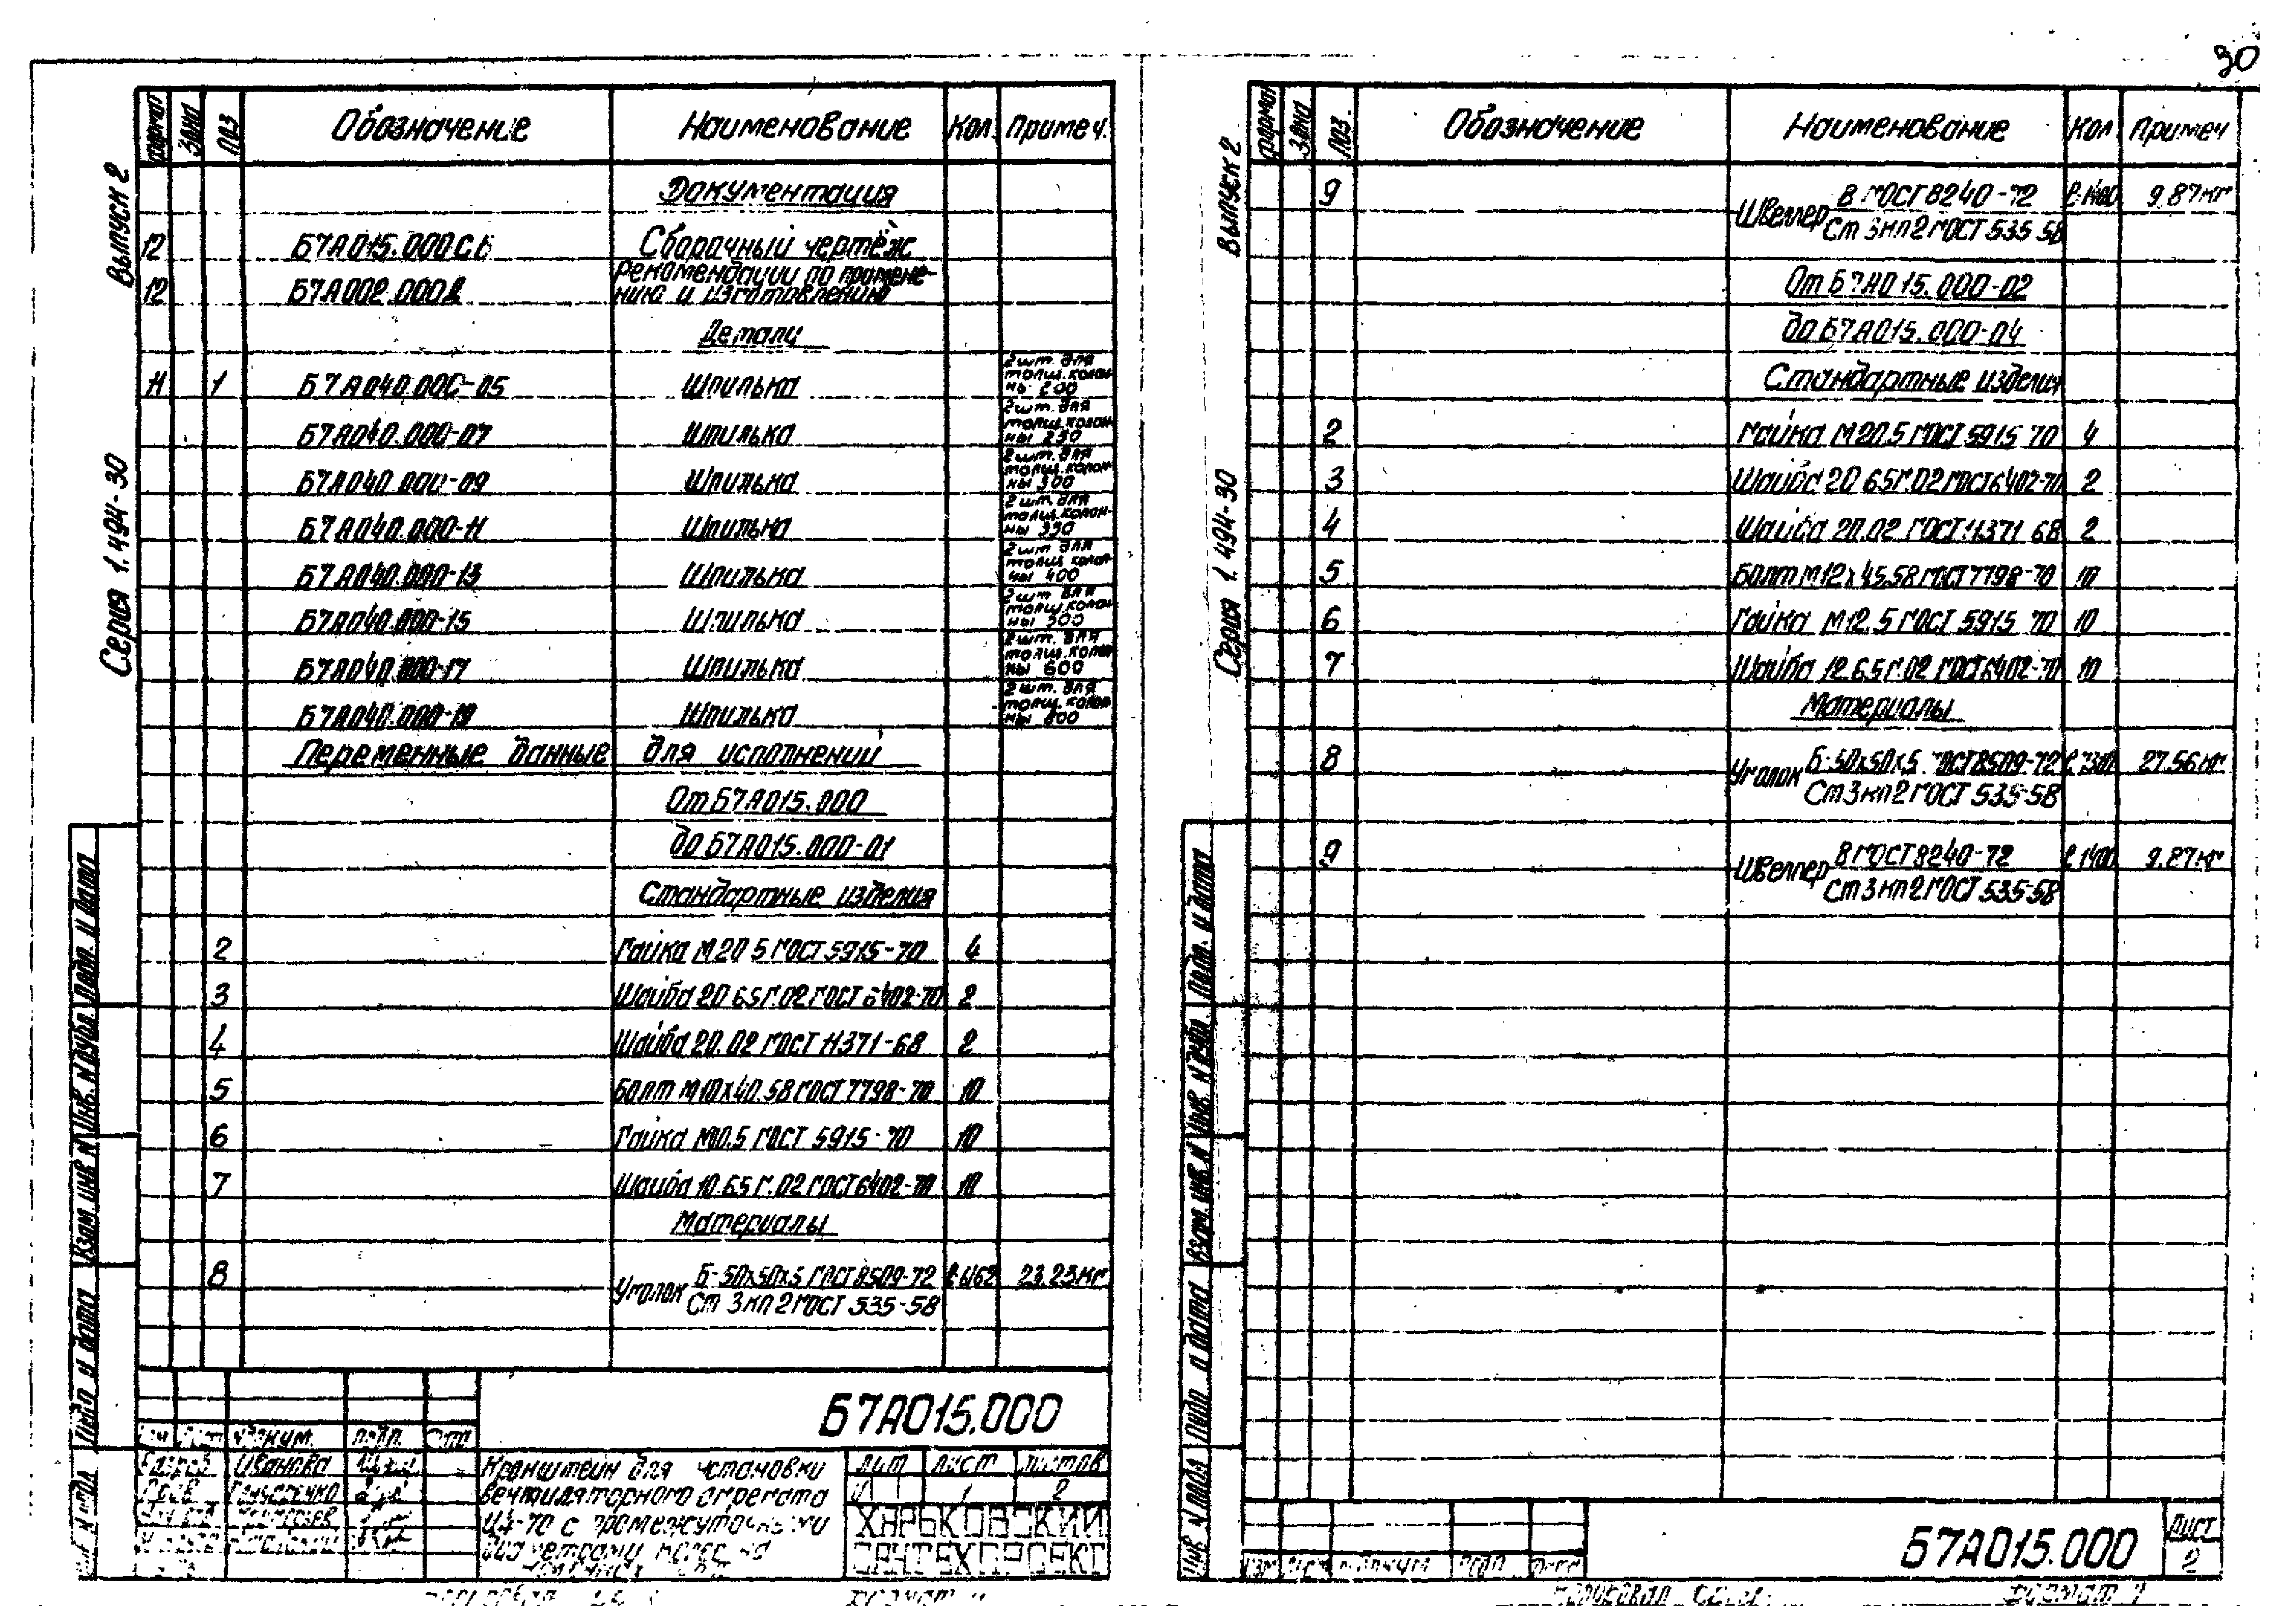 30
Выпуск 2
Серия 1.494-30
Формат Зона Поз Обозначение Наименование Кол. Примеч.
Документация
12 Б7А015.000СБ Сборочный чертёж
12 Б7А002.000Д Рекомендации по примене-
нию и изготовлению
Детали
11 1 Б7А040.000-05 Шпилька 2 шт. для
толщ. колон-
ны 200
Б7А040.000-07 Шпилька 2 шт. для
толщ. колон-
ны 250
Б7А040.000-09 Шпилька 2 шт. для
толщ. колон-
ны 300
Б7А040.000-11 Шпилька 2 шт. для
толщ. колон-
ны 350
Б7А040.000-13 Шпилька 2 шт для
толщ колон-
ны 400
Б7А040.000-15 Шпилька 2 шт для
толщ. колон-
ны 500
Б7А040.000-17 Шпилька 2 шт. для
толщ. колон-
ны 600
Б7А040.000-19 Шпилька 2 шт. для
толщ. колон-
ны 800
Переменные данные для исполнений
От Б7А015.000
до Б7А015.000-01
Стандартные изделия
2 Гайка М20 5 ГОСТ 5915-70 4
3 Шайба 20 65Г.02 ГОСТ 6402-70 2
4 Шайба 20.02 ГОСТ 11371-68 2
5 Болт М10х40.58 ГОСТ 7798-70 10
6 Гайка М10.5 ГОСТ 5915-70 10
7 Шайба 10.65Г.02 ГОСТ 6402-70 10
Материалы
8 Уголок Б-50х50х5 ГОСТ 8509-72 ℓ-6162 23.23кг
Ст 3кп2 ГОСТ 535-58
Б7А015.000
Лист № докум. Подп. Дата
Разраб Иванова
Пров Гончаренко
Кронштейн для установки
вентиляторного агрегата
Ц4-70 с промежуточными
диаметрами колес на
Лит Лист Листов
И 1 2
ХАРЬКОВСКИЙ
САНТЕХПРОЕКТ
Подп. и дата
Инв. № дубл
Взам инв №
Подп и дата
Инв № подл
Выпуск 2
Серия 1.494-30
Формат Зона Поз. Обозначение Наименование Кол. Примеч
9 Швеллер 8 ГОСТ 8240-72 ℓ-1400 9.87кг
Ст 3кп2 ГОСТ 535-58
От Б7А015.000-02
до Б7А015.000-04
Стандартные изделия
2 Гайка М20.5 ГОСТ 5915 70 4
3 Шайба 20 65Г.02 ГОСТ 6402-70 2
4 Шайба 20.02 ГОСТ 11371 68 2
5 Болт М12х45.58 ГОСТ 7798-70 10
6 Гайка М12.5 ГОСТ 5915 70 10
7 Шайба 12.65Г.02 ГОСТ 6402-70 10
Материалы
8 Уголок Б-50х50х5 ГОСТ 8509-72 ℓ 7300 27.56кг
Ст 3кп2 ГОСТ 535-58
9 Швеллер 8 ГОСТ 8240-72 ℓ 1400 9.87кг
Ст 3кп2 ГОСТ 535-58
Б7А015.000
Лист
2
Подп. и дата
Инв № дубл
Взам. инв. №
Подп и дата
Инв № подл
Копировал
Формат 11